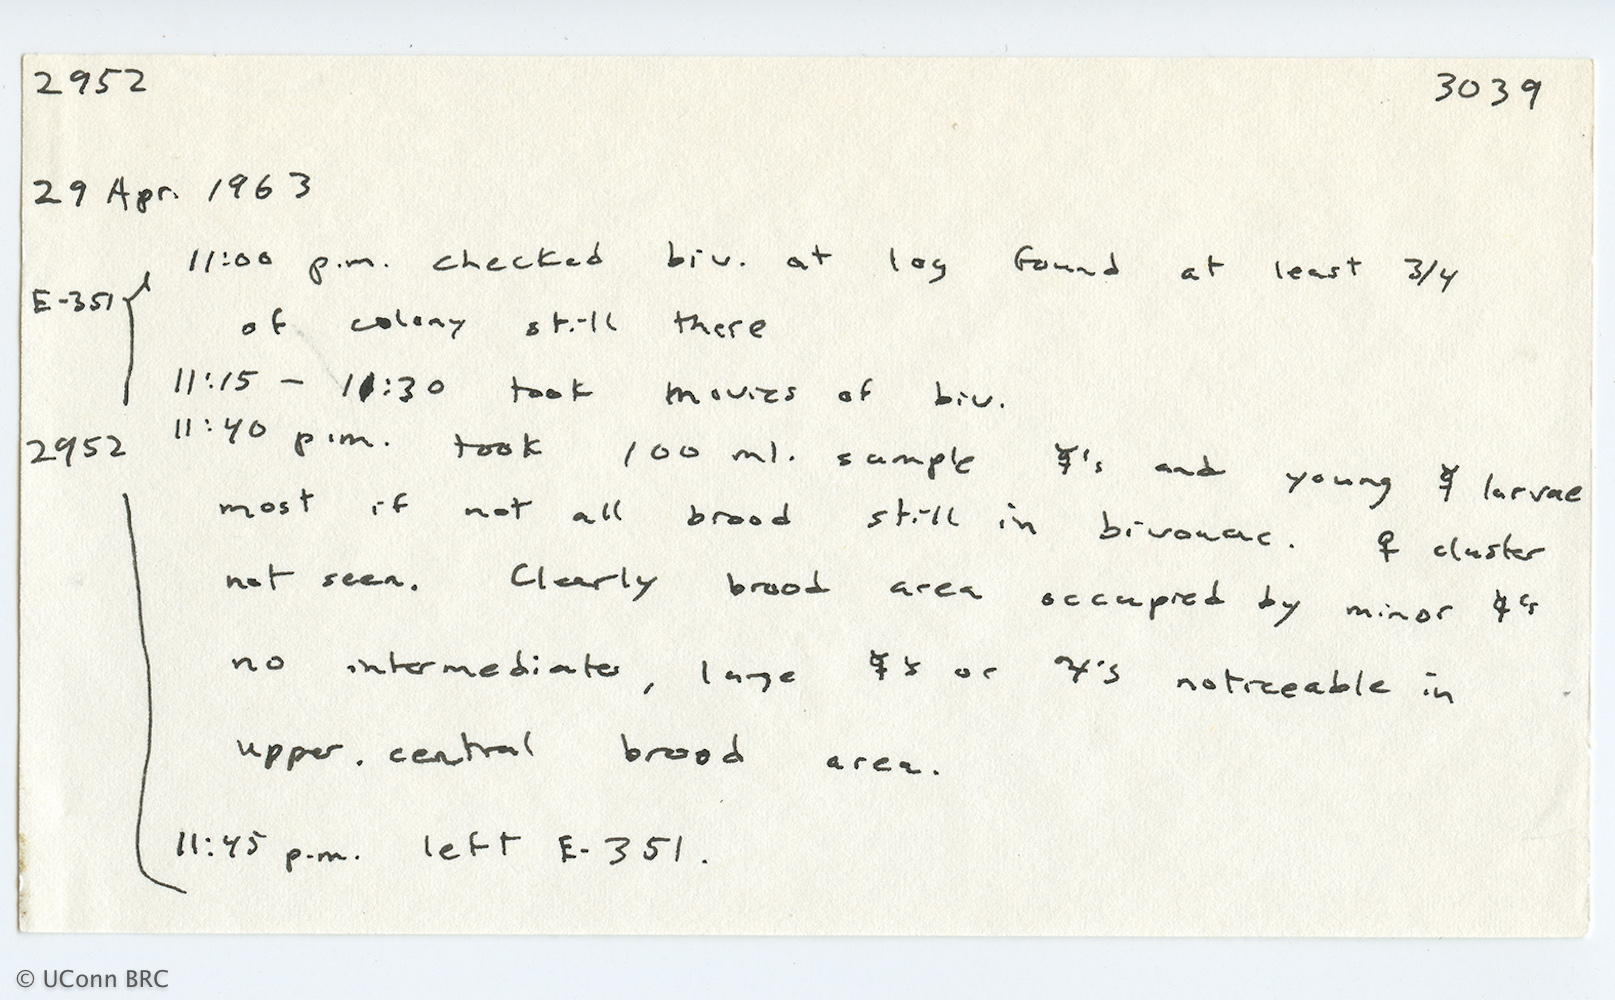 2952 3039
29 Apr. 1963
11:00 p.m. checked biv. at log found at least 3/4
E-351
of colony still there
11:15 - 11:30 took movies of biv.
11:40 p.m. took 100 ml. sample ☿'s and young ☿ larvae
2952
most if not all brood still in bivouac. ♀ cluster
not seen. Clearly brood area occupied by minor ☿'s
no intermediates, large ☿'s or ♃'s noticeable in
upper. central brood area.
11:45 p.m. left E-351.
© UConn BRC